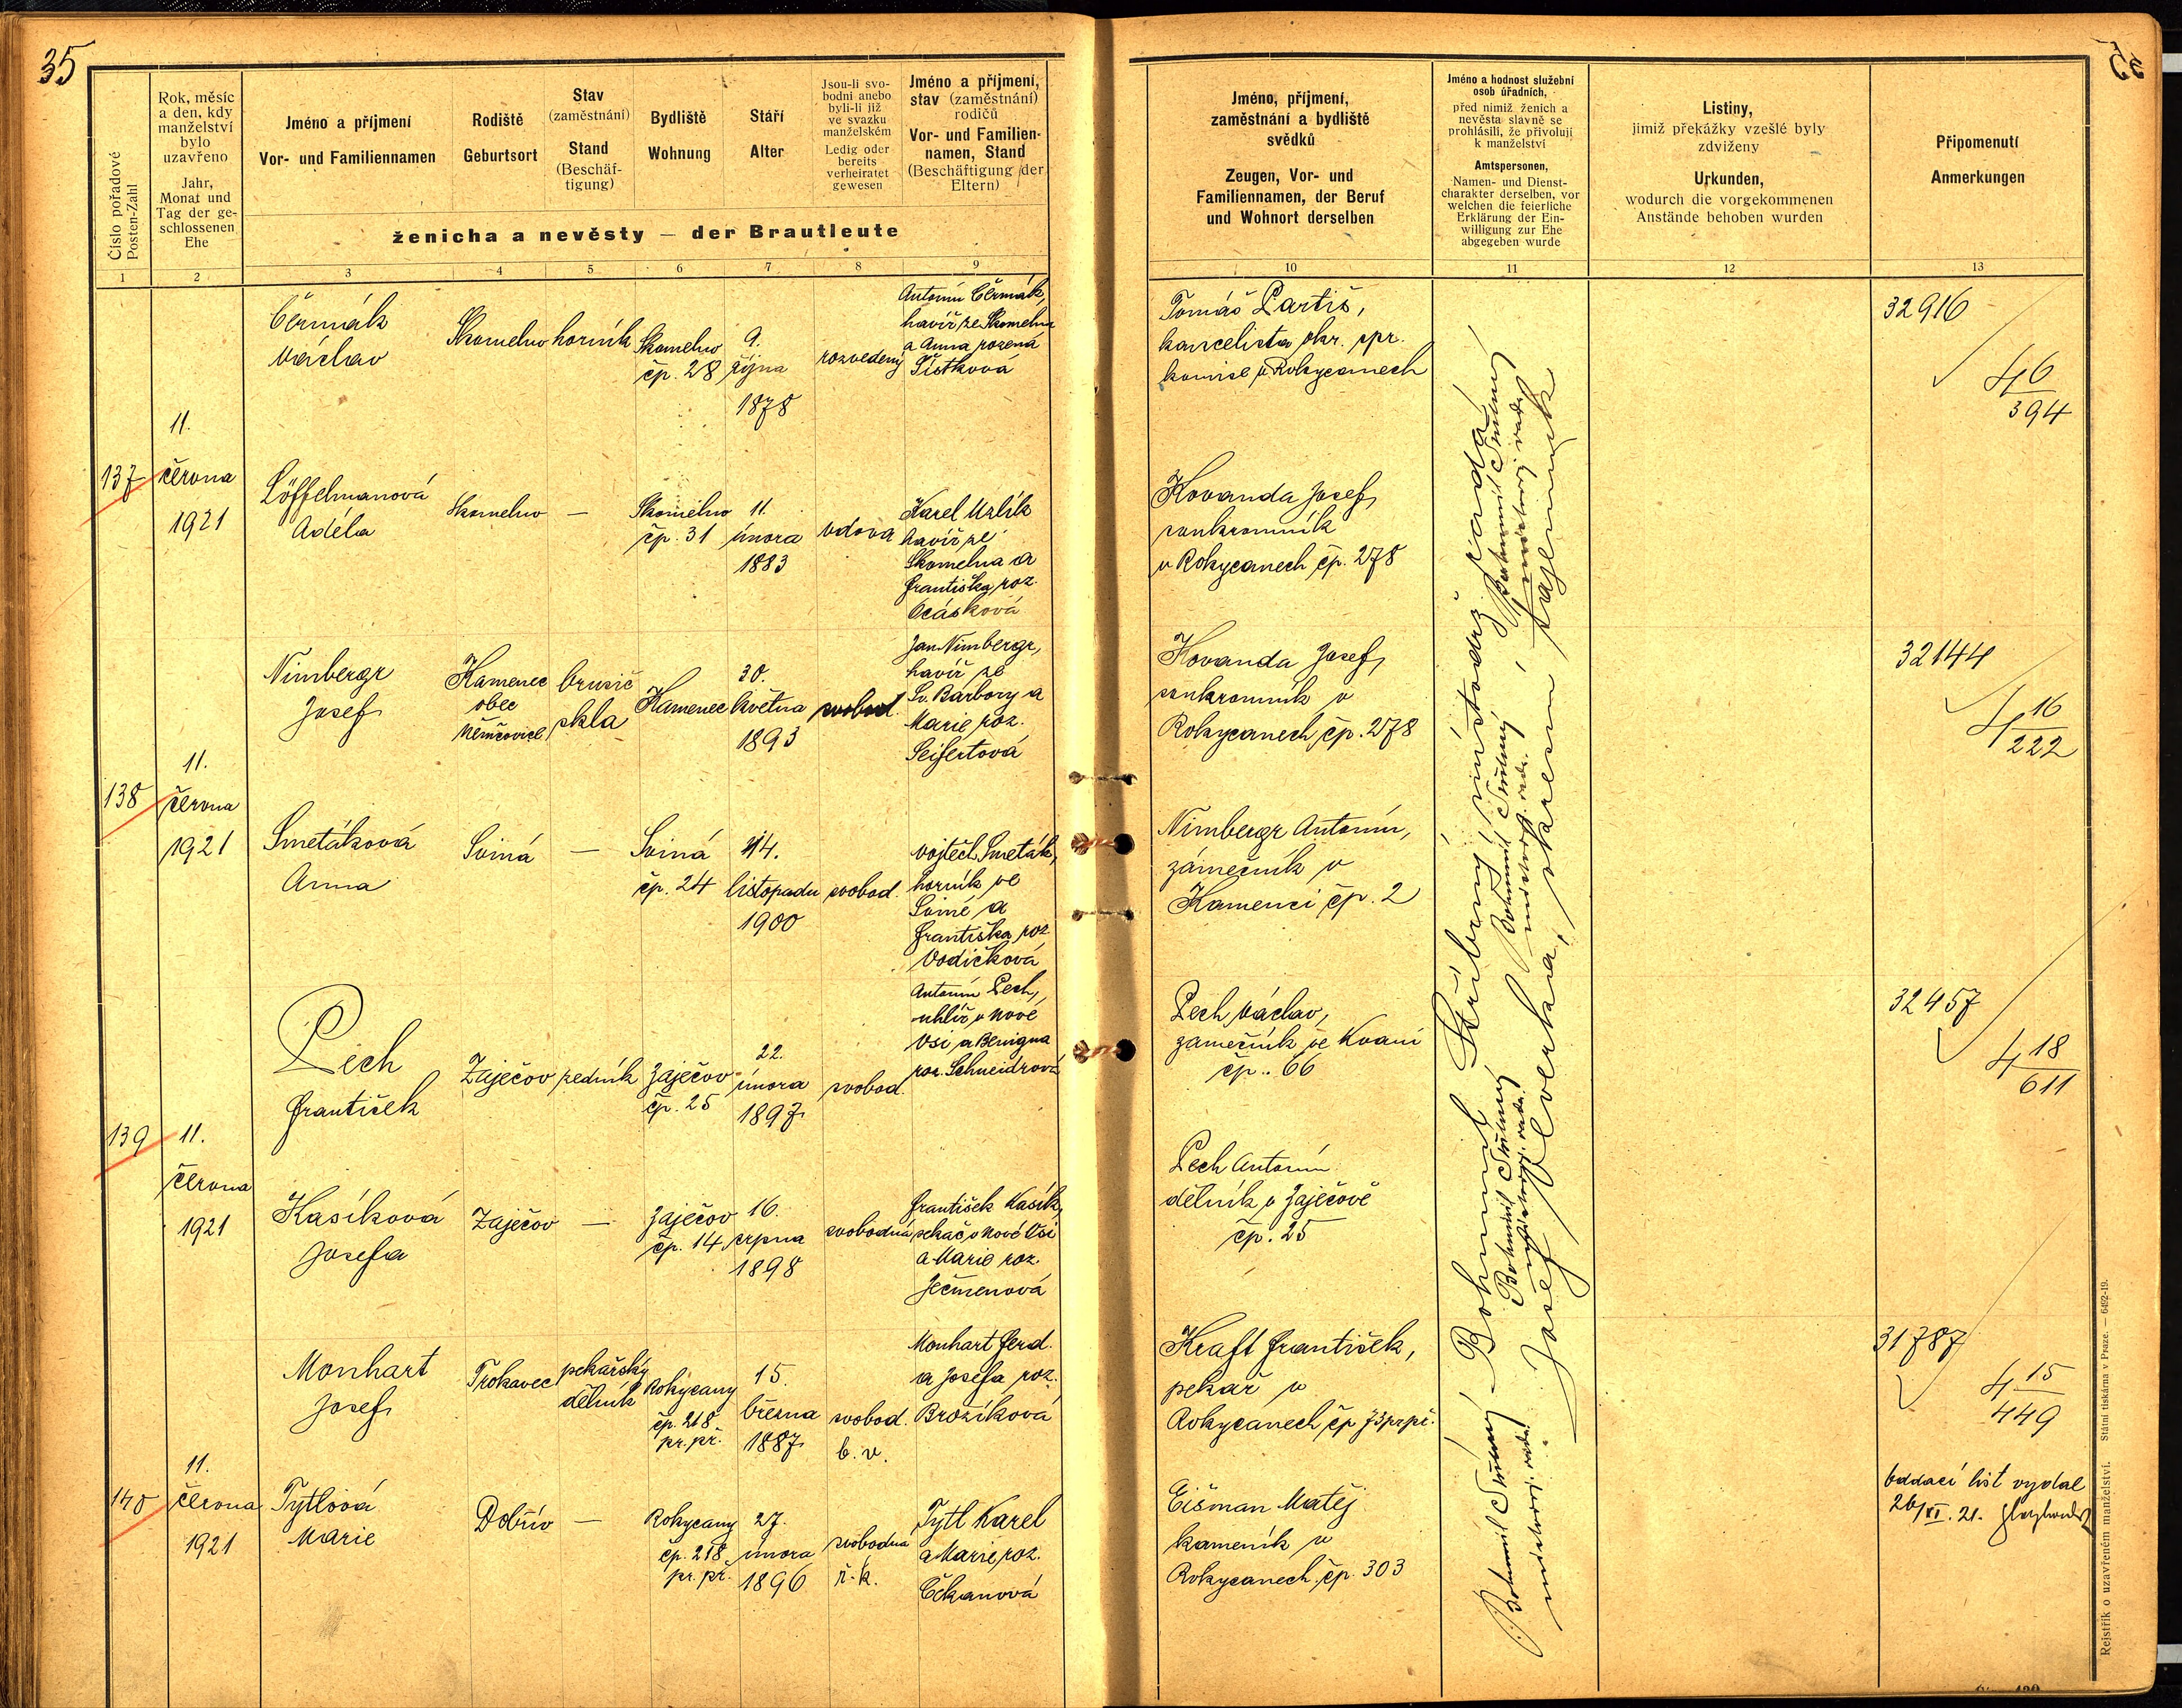 35
Číslo pořadové
Posten-Zahl
Rok, měsíc
a den, kdy
manželství
bylo
uzavřeno
Jahr,
Monat und
Tag der ge-
schlossenen
Ehe
Jméno a příjmení
Vor- und Familiennamen
Rodiště
Geburtsort
Stav
(zaměstnání)
Stand
(Beschäf-
tigung)
Bydliště
Wohnung
Stáří
Alter
Jsou-li svo-
bodni anebo
byli-li již
ve svazku
manželském
Ledig oder
bereits
verheiratet
gewesen
Jméno a příjmení,
stav (zaměstnání)
rodičů
Vor- und Familien-
namen, Stand
(Beschäftigung der
Eltern)
ženicha a nevěsty — der Brautleute
1 2 3 4 5 6 7 8 9
Jméno, příjmení,
zaměstnání a bydliště
svědků
Zeugen, Vor- und
Familiennamen, der Beruf
und Wohnort derselben
Jméno a hodnost služební
osob úřadních,
před nimiž ženich a
nevěsta slavně se
prohlásili, že přivolují
k manželství
Amtspersonen,
Namen- und Dienst-
charakter derselben, vor
welchen die feierliche
Erklärung der Ein-
willigung zur Ehe
abgegeben wurde
Listiny,
jimiž překážky vzešlé byly
zdviženy
Urkunden,
wodurch die vorgekommenen
Anstände behoben wurden
Připomenutí
Anmerkungen
10 11 12 13
137
11.
června
1921
Čermák
Václav
Skomelno
horník
Skomelno
čp. 28
9.
října
1878
rozvedený
Antonín Čermák,
havíř ze Skomelna
a Anna rozená
Šístková
Tomáš Partiš,
kancelista okr. spr.
komise v Rokycanech
32916
4 6
394
Löffelmanová
Adéla
Skomelno
—
Skomelno
čp. 31
11.
února
1883
vdova
Karel Uzlík
havíř ze
Skomelna a
Františka roz.
Ocásková
Kovanda Josef,
soukromník
v Rokycanech čp. 278
138
11.
června
1921
Nimbergr
Josef
Kamenec
obec
Němčovice
brusič
skla
Kamenec
30.
května
1893
svobod.
Jan Nimbergr,
havíř ze
Sv. Barbory a
Marie roz.
Seifertová
Kovanda Josef,
soukromník v
Rokycanech, čp. 278
32144
4 16
222
Smetáková
Anna
Sviná
—
Sviná
čp. 24
14.
listopadu
1900
svobod.
Vojtěch Smeták,
horník ve
Sviné a
Františka roz
Vodičková
Nimbergr Antonín,
zámečník v
Kamenci čp. 2
139
11.
června
1921
Pech
František
Zaječov
zedník
Zaječov
čp. 25
22.
února
1897
svobod.
Antonín Pech,
uhlíř v Nové
Vsi a Benigna
roz. Schneidrová
Pech Václav,
zámečník ve Kvani
čp. 66
32457
4 18
611
Kasíková
Josefa
Zaječov
—
Zaječov
čp. 14
16.
srpna
1898
svobodná
František Kasík,
sekáč v Nové Vsi
a Marie roz.
Ječmenová
Pech Antonín
dělník v Zaječově
čp. 25
140
11.
června
1921
Monhart
Josef
Trokavec
pekařský
dělník
Rokycany
čp. 218
pr. př.
15.
března
1887
svobod.
b. v.
Monhart Ferd.
a Josefa roz.
Brožíková
Kraft František,
pekař v
Rokycanech čp 73 pr př.
31787
4 15
449
Tytlová
Marie
Dobřív
—
Rokycany
čp. 218
pr. př.
27.
února
1896
svobodná
ř. k.
Tytl Karel
a Marie roz.
Čekanová
Eišman Matěj
kameník v
Rokycanech čp. 303
Oddací list vydal
26/XI. 21.
Bohumil Stříbrný, místodrž. rada
Josef Cloverkna, okresní tajemník
Rejstřík o uzavřeném manželství.
Státní tiskárna v Praze. — 6492-19.